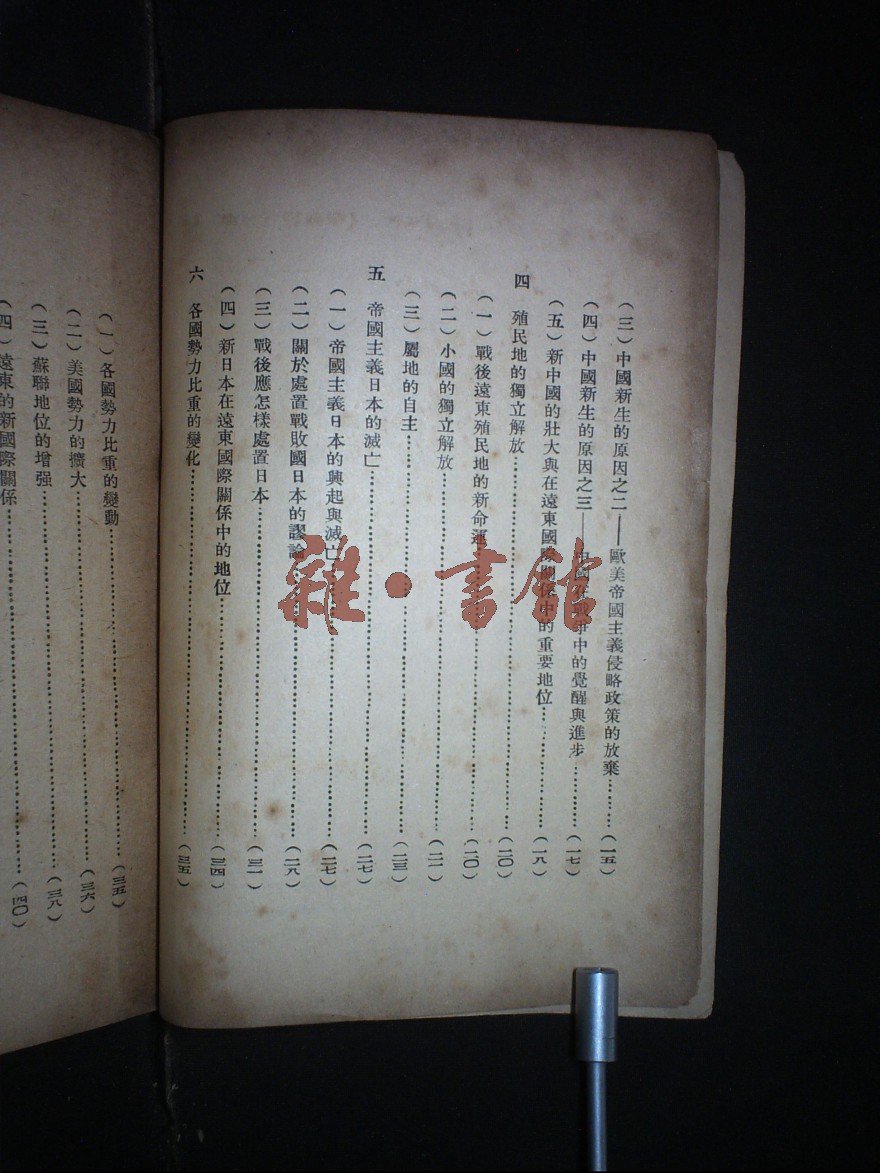 （三）中國新生的原因之二——歐美帝國主義侵略政策的放棄……（一五）
（四）中國新生的原因之三——中國在戰爭中的覺醒與進步……（一七）
（五）新中國的壯大與在遠東國際關係中的重要地位……（一八）
四　殖民地的獨立解放……（二〇）
（一）戰後遠東殖民地的新命運……（二〇）
（二）小國的獨立解放……（二一）
（三）屬地的自主……（二三）
五　帝國主義日本的滅亡……（二七）
（一）帝國主義日本的興起與滅亡……（二七）
（二）關於處置戰敗國日本的謬論……（二八）
（三）戰後應怎樣處置日本……（三一）
（四）新日本在遠東國際關係中的地位……（三四）
六　各國勢力比重的變化……（三五）
（一）各國勢力比重的變動……（三五）
（二）美國勢力的擴大……（三六）
（三）蘇聯地位的增强……（三八）
（四）遠東的新國際關係……（四〇）
雜·書館